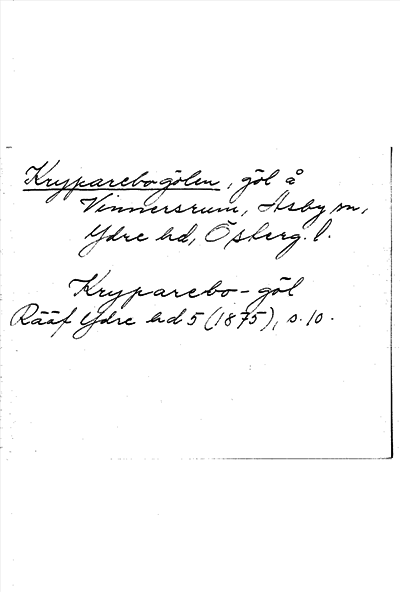 Kryparebo-gölen, göl å
Vinnersrum, Asby sn,
Ydre hd, Österg. l.
Kryparebo-göl
Rääf Ydre hd 5 (1875), s. 10.